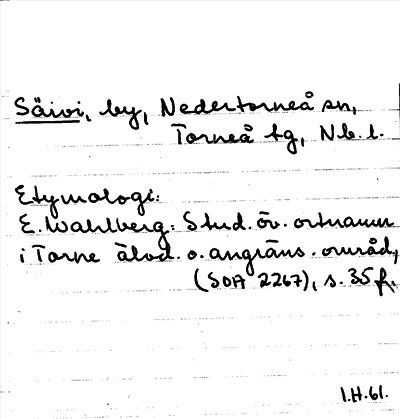 Säivi, by, Nedertorneå sn,
Torneå tg, Nb. l.
Etymologi:
E. Wahlberg: Stud. öv. ortnamn
i Torne älvd. o. angräns. områd,
(SOA 2267), s. 35 f.
I.H. 61.